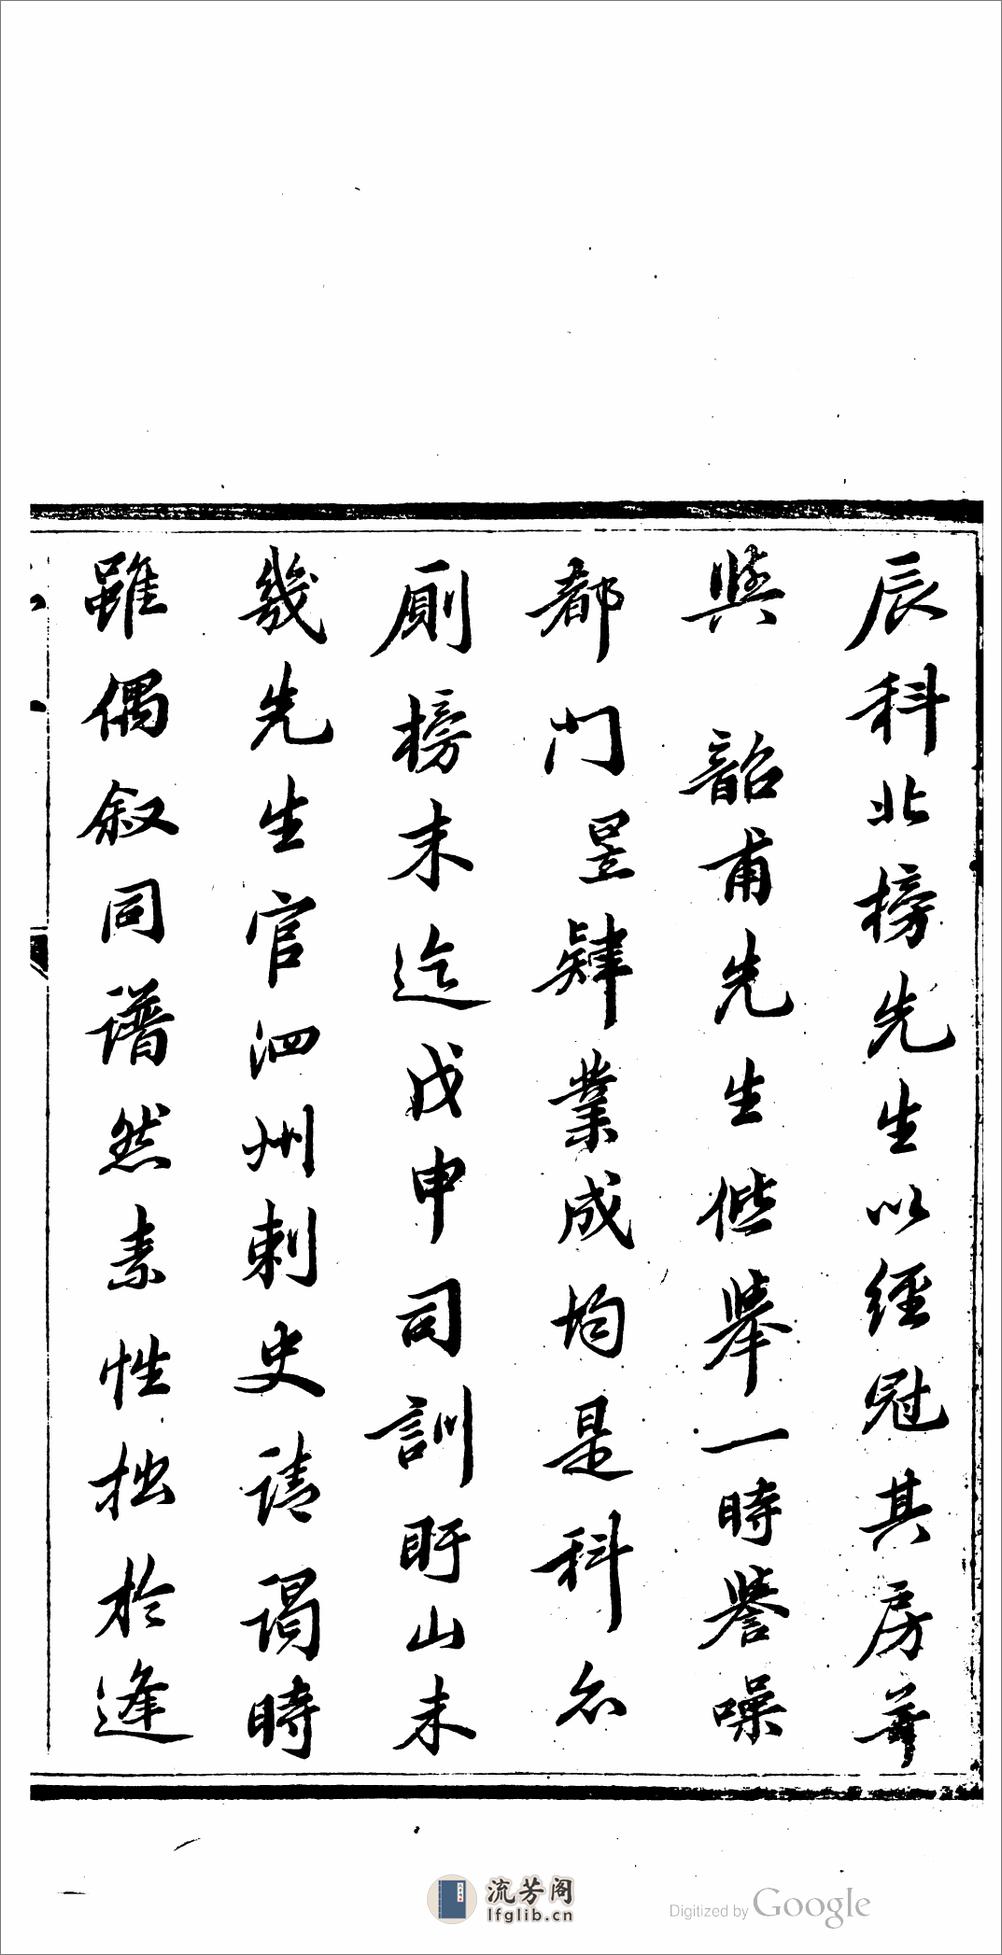 辰科北榜先生以經冠其房并
與 韶甫先生偕舉一時譽噪
都門昱肄業成均是科忝
廁榜末迄戊申司訓盱山未
幾先生官泗州刺史請謁時
雖偶叙同譜然素性拙於逢
流芳阁
lfglib.cn
Digitized by Google